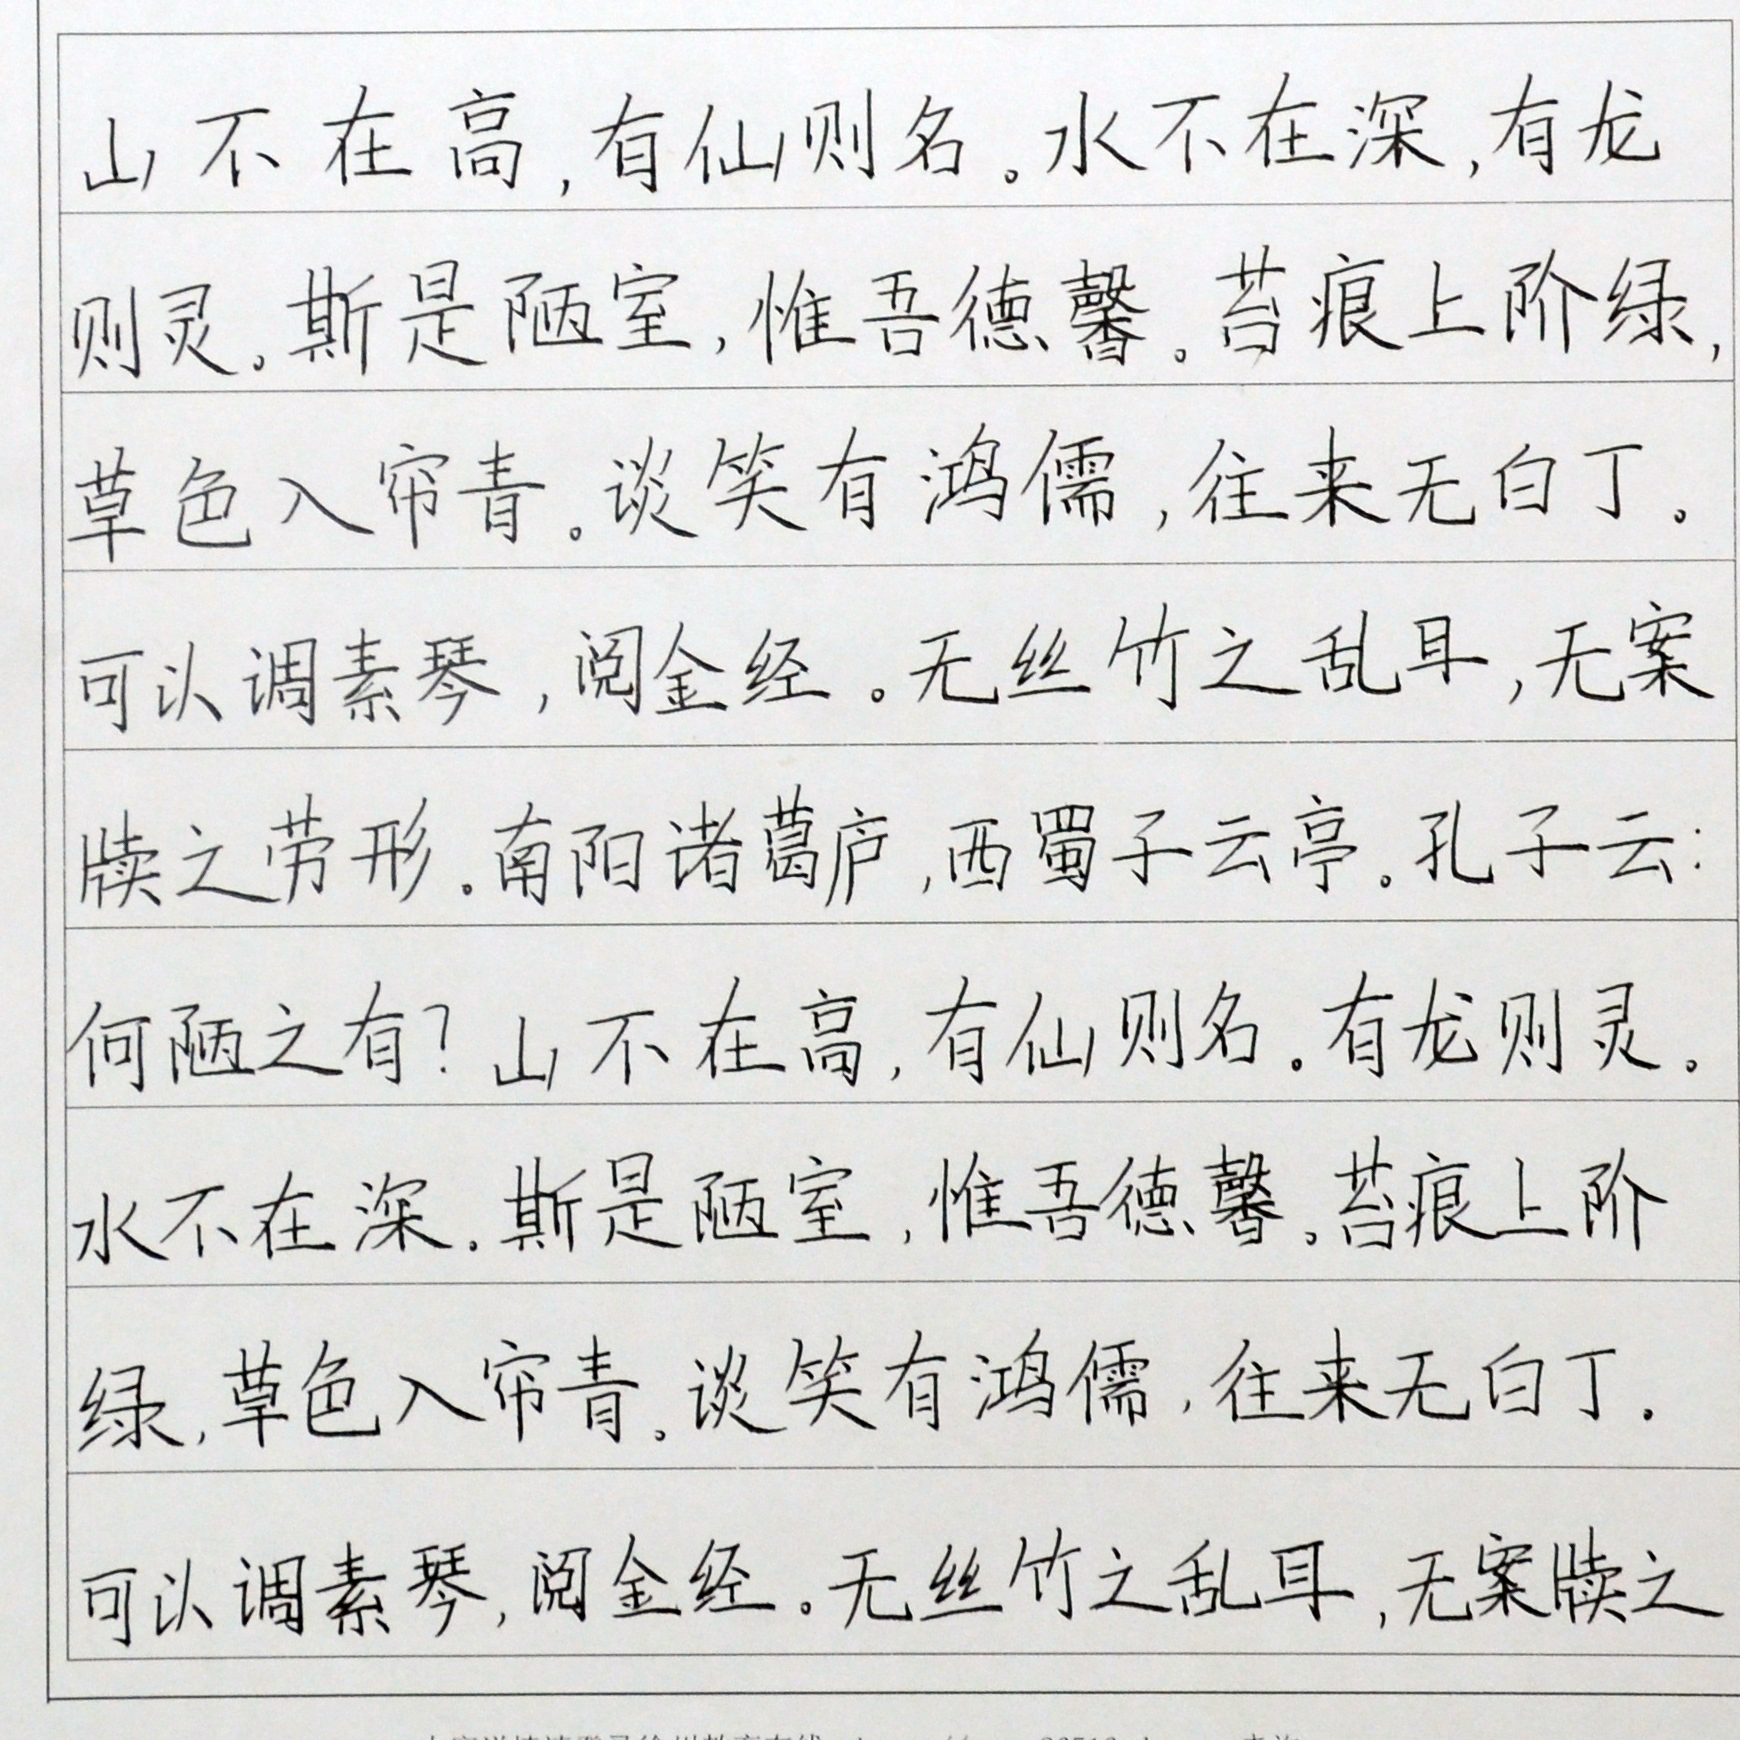 山不在高,有仙则名。水不在深,有龙
则灵。斯是陋室,惟吾德馨。苔痕上阶绿,
草色入帘青。谈笑有鸿儒,往来无白丁。
可以调素琴,阅金经。无丝竹之乱耳,无案
牍之劳形。南阳诸葛庐,西蜀子云亭。孔子云:
何陋之有?山不在高,有仙则名。有龙则灵。
水不在深。斯是陋室,惟吾德馨。苔痕上阶
绿,草色入帘青。谈笑有鸿儒,往来无白丁.
可以调素琴,阅金经。无丝竹之乱耳,无案牍之